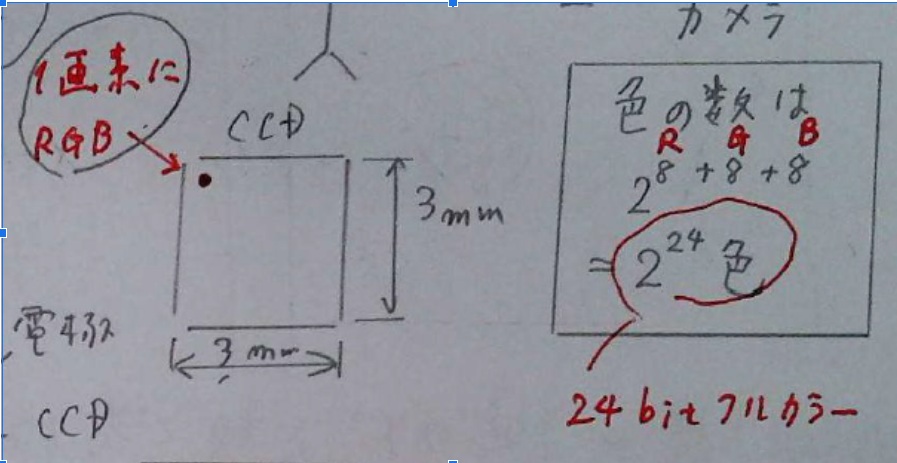 カメラ
1画素に
RGB
CCD
3mm
3mm
CCD
色の数は
R G B
2^8+8+8
=2^24色
24bitフルカラー